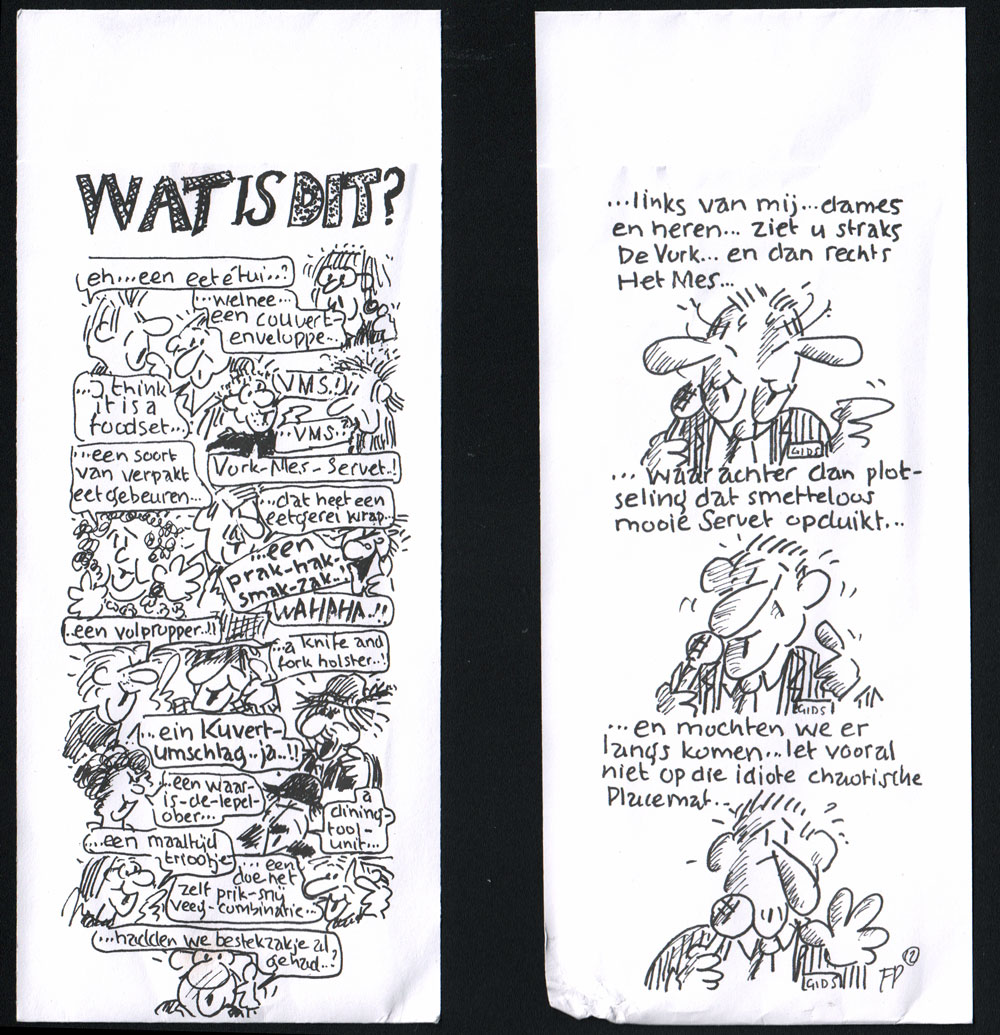 WAT IS DIT?
eh...een eetétui..?
...welnee...
een couvert-
enveloppe...
...I think
it is a
foodset...
VMS.!
...VMS..
Vork-Mes-Servet..!
...een soort
van verpakt
eetgebeuren...
...dat heet een
eetgerei wrap...
...een
prak-hak-
smak-zak..!
WAHAHA..!!
..een volpropper..!!
...a knife and
fork holster..!
...ein Kuvert-
umschlag..ja..!!
...een waar-
is-de-lepel-
ober...
a
dining-
tool-
unit...
...een maaltijd
trootje
...een
doe het
zelf prik-snij
veeg-combinatie...
...hadden we bestekzakje al
gehad..?
...links van mij...dames
en heren... ziet u straks
De Vork... en dan rechts
Het Mes...
GIDS
...waarachter dan plot-
seling dat smetteloos
mooie Servet opduikt...
GIDS
...en mochten we er
langs komen...let vooral
niet op die idiote chaotische
Placemat...
GIDS
FP 12